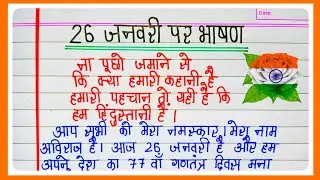 Date:
26 जनवरी पर भाषण
ना पूछो जमाने से
कि क्या हमारी कहानी है
हमारी पहचान तो यही है कि
हम हिंदुस्तानी है।
आप सभी को मेरा नमस्कार। मेरा नाम
अविराज है। आज 26 जनवरी है और हम
अपने देश का 77 वाँ गणतंत्र दिवस मना